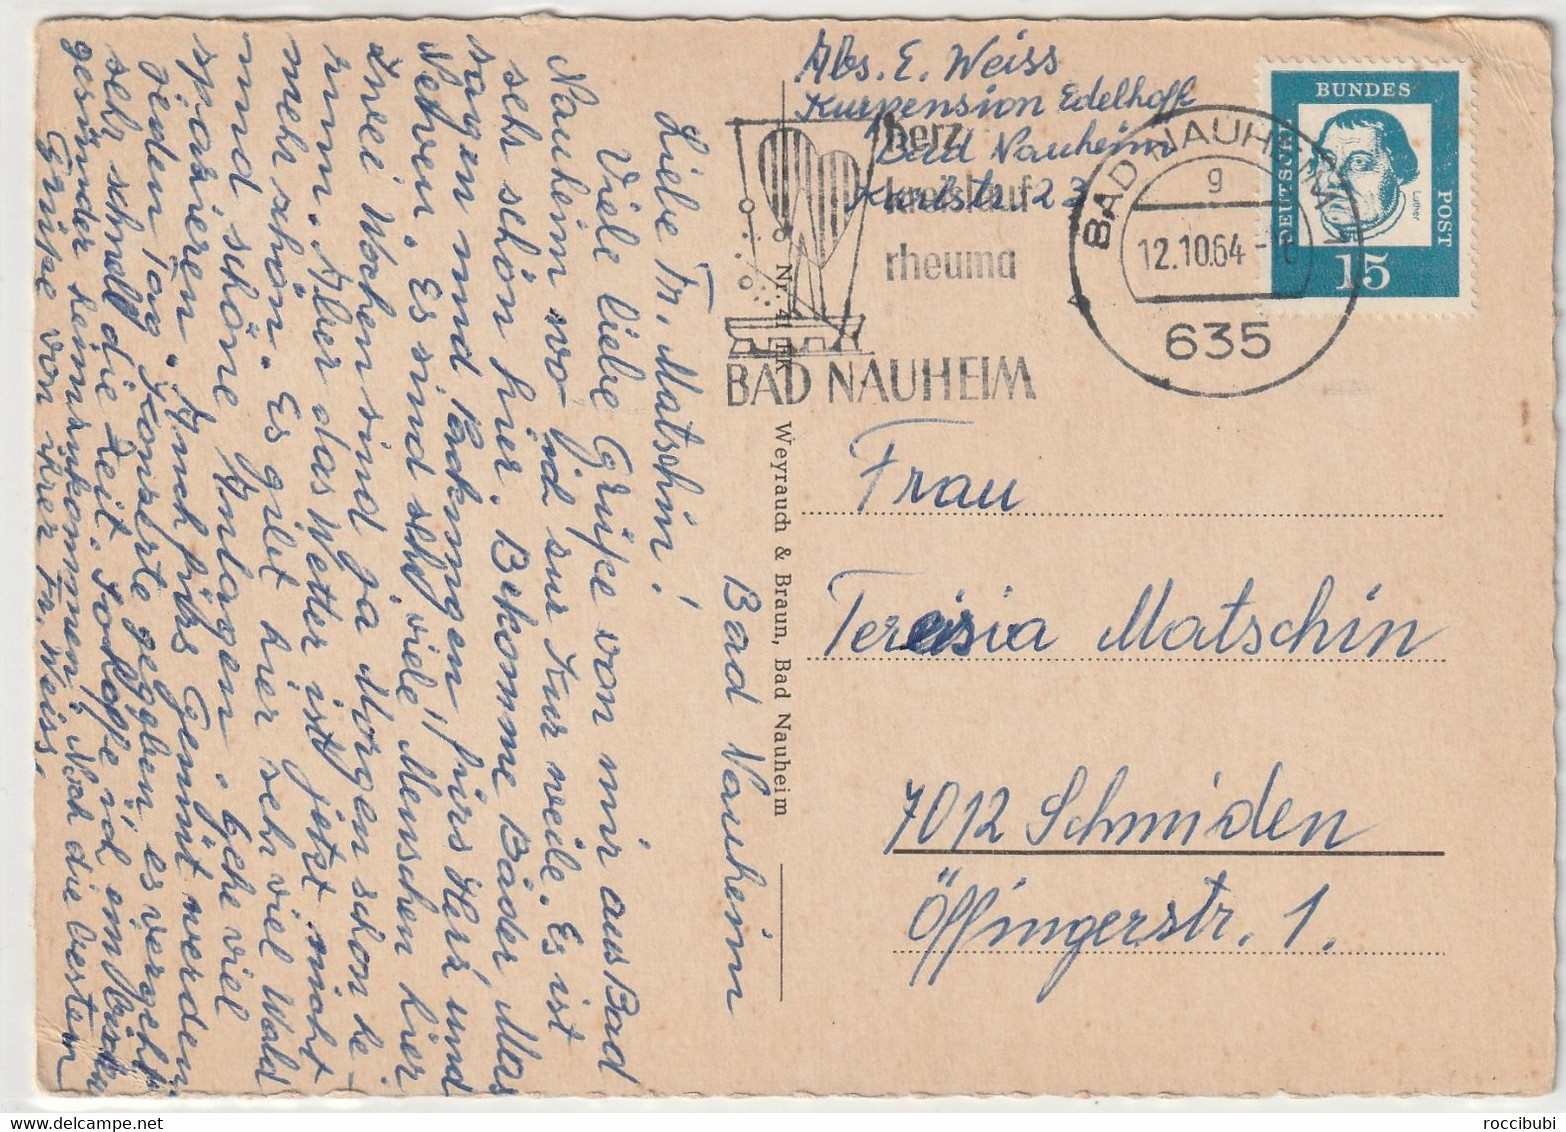 Abs. E. Weiss
Kurpension Edelhoff
Bad Nauheim
Karlstr. 23
herz
kreislauf
rheuma
BAD NAUHEIM
BAD NAUHEIM
g
12.10.64
635
DEUTSCHE
BUNDES
POST
Luther
15
Frau
Teresia Matschin
7012 Schmiden
Öffingerstr. 1.
Nr. 41 HK
Weyrauch & Braun, Bad Nauheim
Bad Nauheim
Liebe Fr. Matschin!
Viele liebe Grüße von mir aus Bad
Nauheim wo ich zur Kur weile. Es ist
sehr schön hier. Bekomme Bäder, Mas
sagen und Packungen fürs Herz und
Nerven. Es sind sehr "viele" Menschen hier
Zwei Wochen sind ja Morgen schon he-
rum. Aber das Wetter ist jetzt nicht
mehr schön. Es gibt hier sehr viel Wald
und schöne Anlagen. Gehe viel
spazieren. Auch fürs Gemüt werden
jeden Tag Konzerte gegeben es vergeht
sehr schnell die Zeit. So hoffe ich ein bischen
gesünder heimzukommen. Noch die besten
Grüße von ihrer Fr. Weiss.
roccibubi